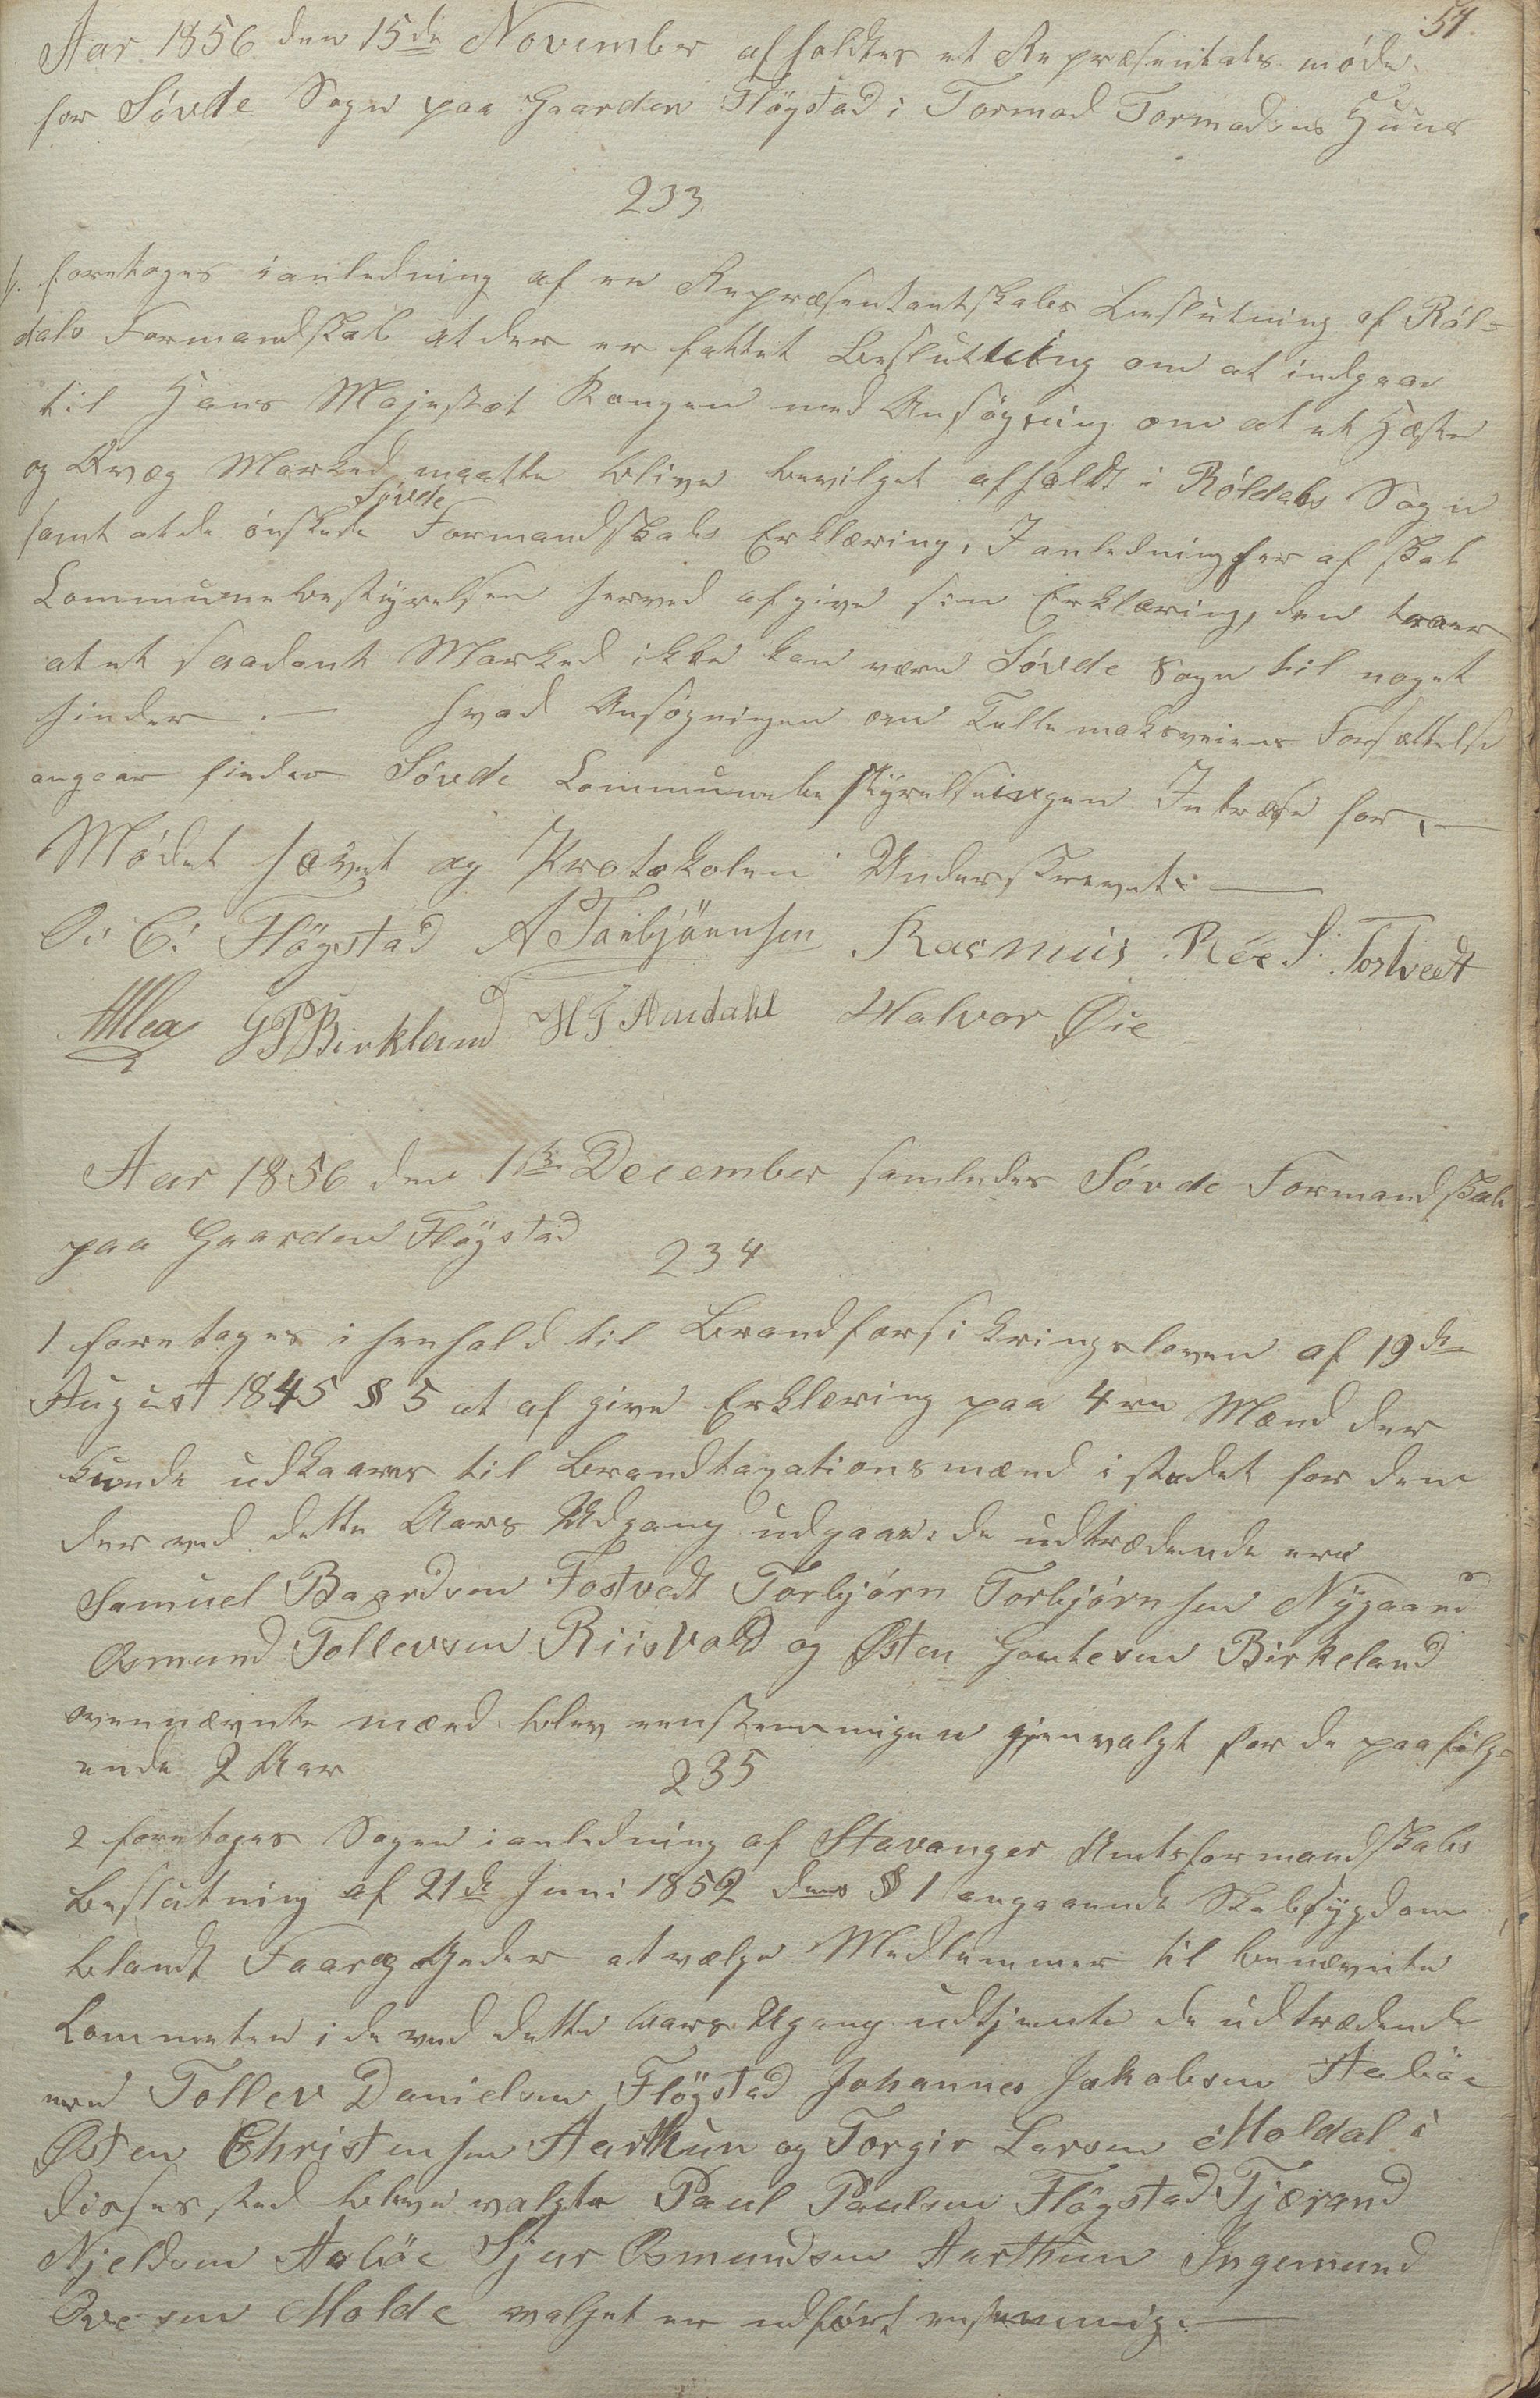 54.
Aar 1856 den 15de November afholdtes et Repræsentats møde
for Søvde Sogn paa Gaarden Fløgstad i Tormod Tormodsens Huus
233
1. foretoges ianledning af en Repræsentantskabs Beslutning af Røl-
dals Formandskab at der er fattet Beslutning om at indgaae
til Hans Majestæt Kongen med Ansøgning om at et Heste
og Qvæg Marked maatte blive bevilget afholdt i Røldals Sogn
Søvde
samt at de ønskede Formandskabs Erklæring, I anledning her af skal
Communebestyrelsen herved afgive sin Erklæring, den troer
at et saadant Marked ikke kan være Søvde Sogn til noget
hinder. — Hvad Ansøgningen om Tellemarksveiens Forsættelse
angaar finder Søvde Communebestyrelse ingen Intresse for. —
Mødet hævet og Protokolen Underskrevet: —
O. C. Fløgstad A Torbjörnsen Rasmus Røe S. Fostvedt
GPBirkland H T Amdahl Halvor Øie
Aar 1856 den 1ste December samledes Søvde Formandskab
paa Gaarden Fløgstad
234
1 foretoges i henhold til Brandforsikringsloven af 19de
August 1845 § 5 at afgive Erklæring paa 4re Mænd der
kunde udkaares til Brandtaxationsmænd i stedet for dem
der ved dette Aars Udgang udgaar: de udtrædende ere
Samuel Baardsen Fostvedt Torbjørn Torbjørnsen Nygaard
Osmund Tollevsen Riisvold og Østen Gautesen Birkeland
ovennævnte mænd blev eenstemmigen gjenvalgt for de paafølg-
ende 2 Aar
235
2 foretoges Sagen ianledning af Stavanger Amtsformandskabs
Beslutning af 21de Juni 1852 dens § 1 angaaende Skabsygdom
blandt Faar og Geder at vælge Medlemmer til benævnte
Commeten i de ved dette Aars Ugang udtjente de udtrædende
ere Tollev Danielsen Fløgstad Johannes Jakobsen Aabøe
Østen Christensen Aarthun og Torgir Larsen Moldal i
disses sted bleve valgte Paul Paulsen Fløgstad Tjærand
Njeldsen Aabøe Sjur Osmundsen Aarthun Ingemund
Ovesen Molde valget er udført enstemmig. —